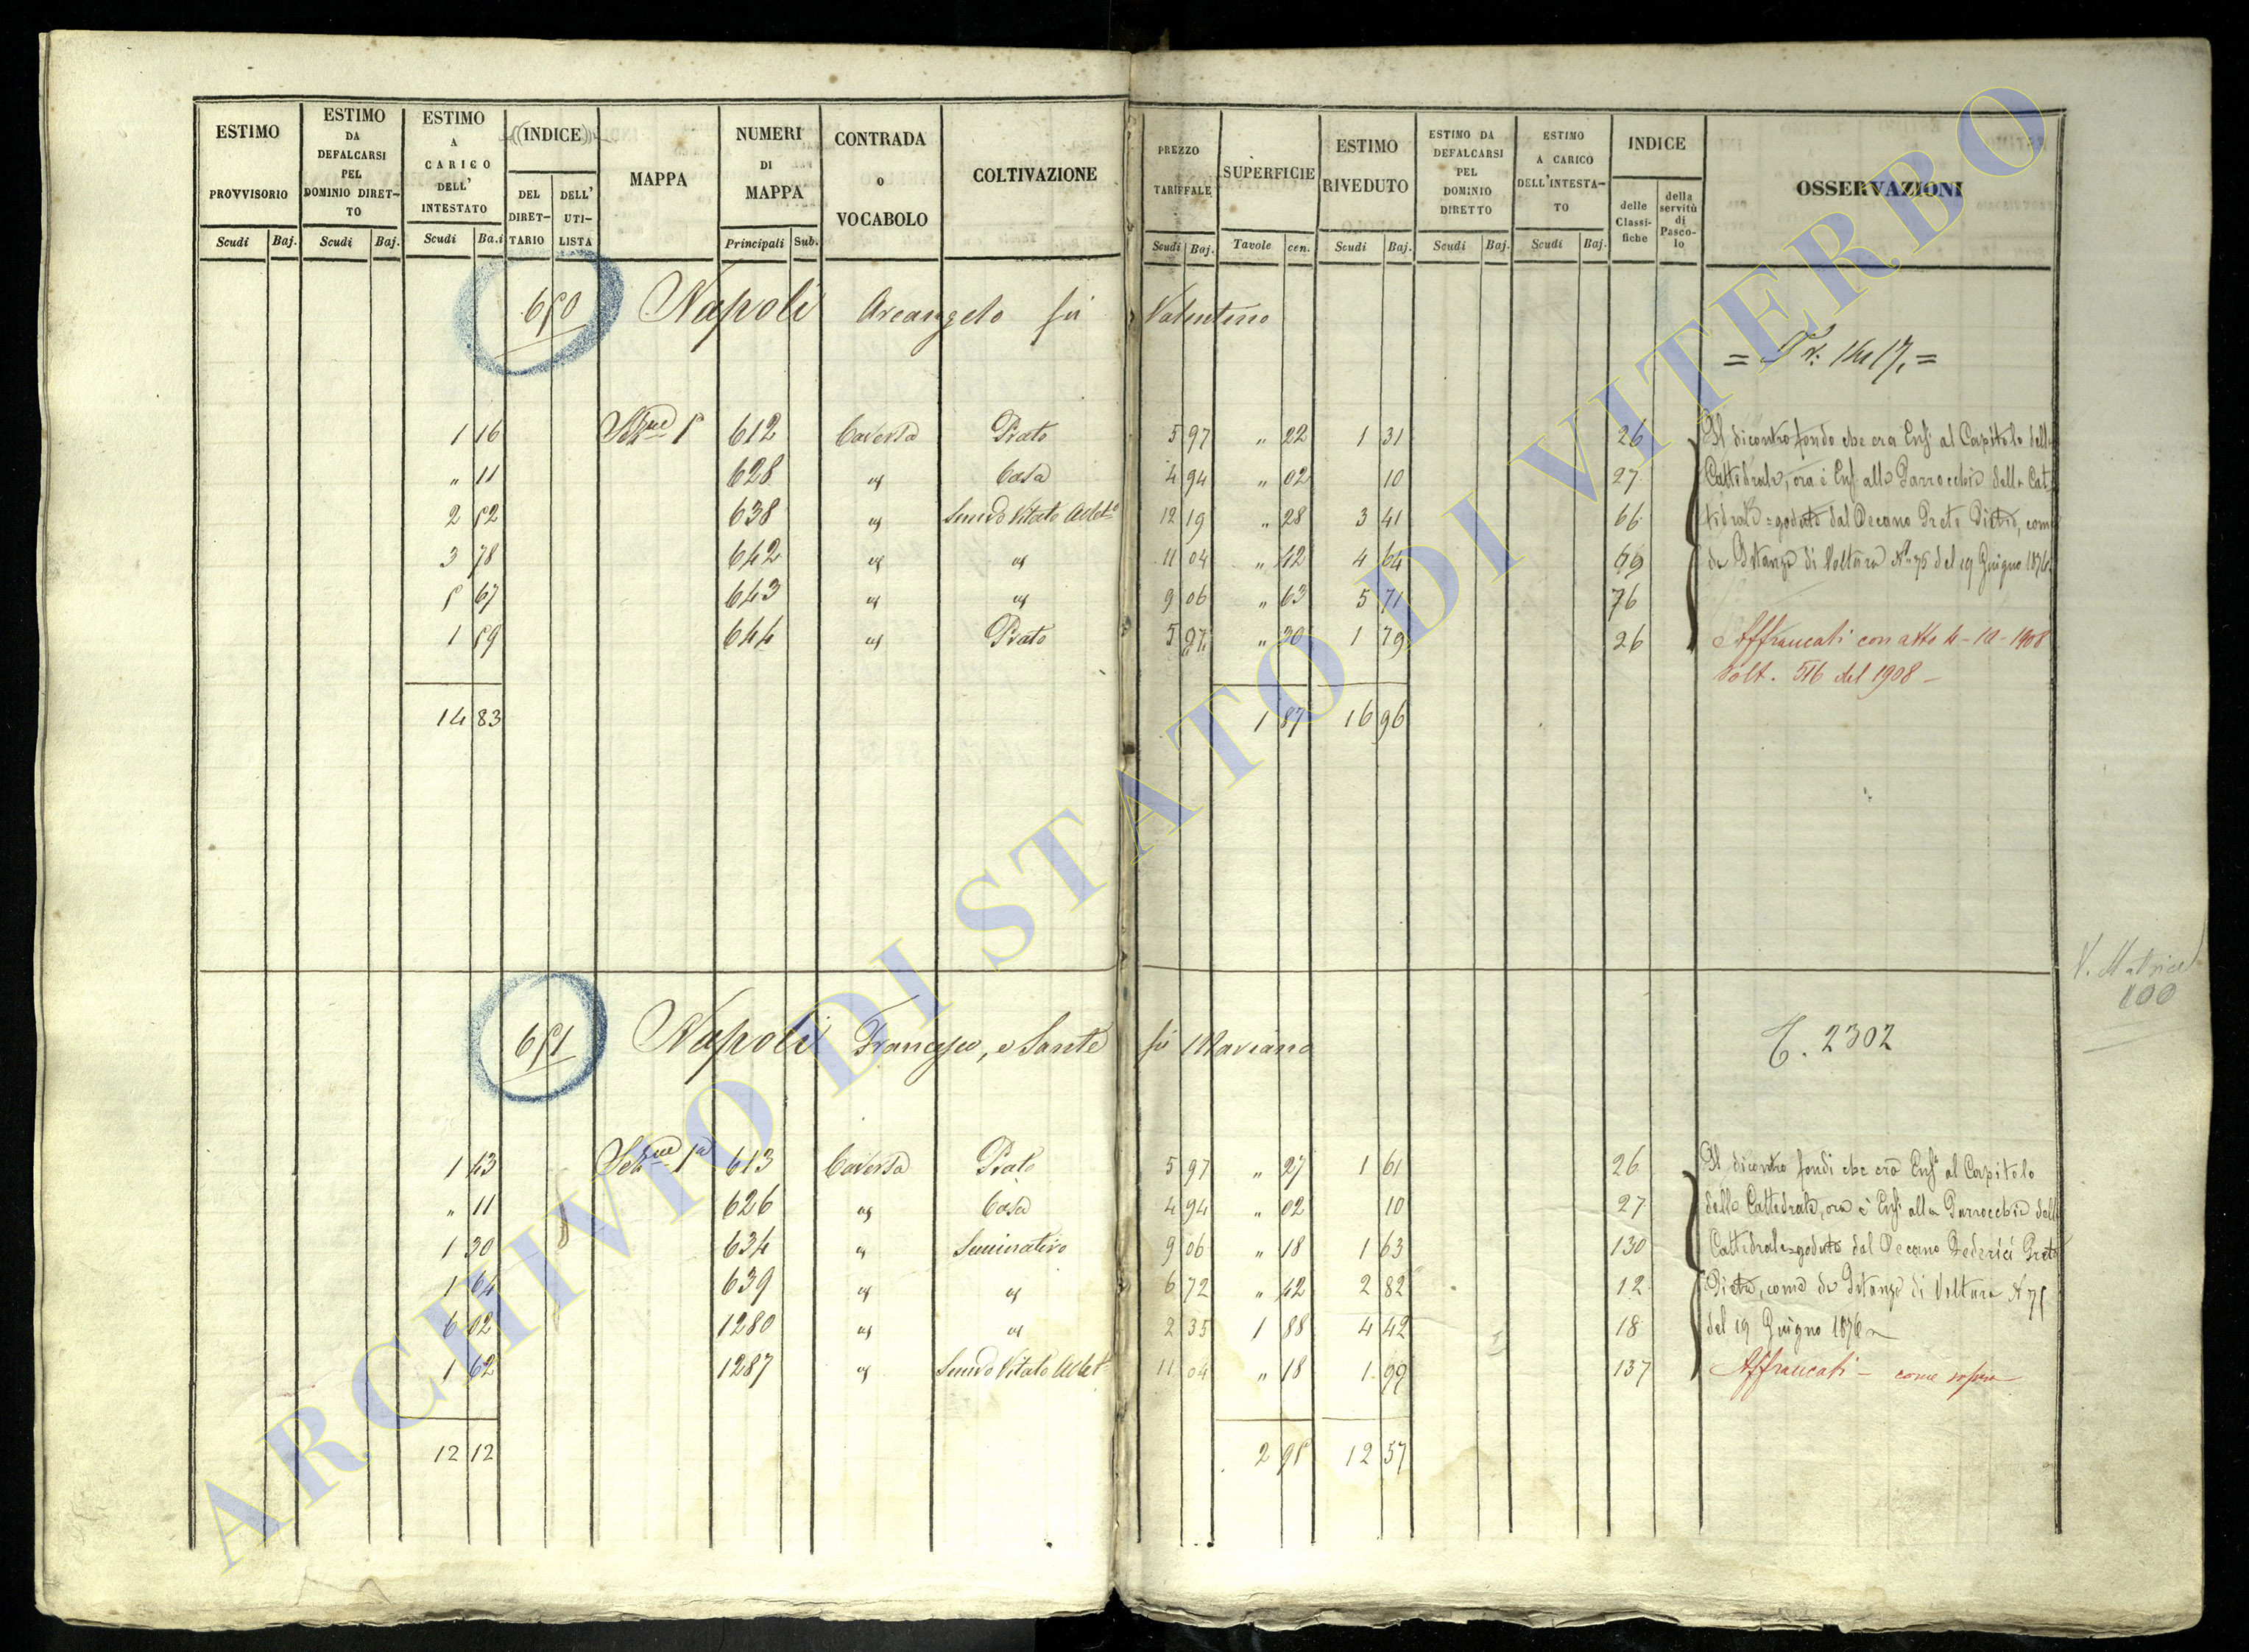 ESTIMO PROVVISORIO Scudi Baj.
ESTIMO DA DEFALCARSI PEL DOMINIO DIRETTO Scudi Baj.
ESTIMO A CARICO DELL' INTESTATO Scudi Ba.i
INDICE DEL DIRETTARIO DELL' UTILISTA
MAPPA
NUMERI DI MAPPA Principali Sub.
CONTRADA O VOCABOLO
COLTIVAZIONE
PREZZO TARIFFALE Scudi Baj.
SUPERFICIE Tavole cen.
ESTIMO RIVEDUTO Scudi Baj.
ESTIMO DA DEFALCARSI PEL DOMINIO DIRETTO Scudi Baj.
ESTIMO A CARICO DELL'INTESTATO Scudi Baj.
INDICE delle Classifiche della servitù di Pascolo
OSSERVAZIONI
650 Napoli Arcangelo fu Valentino
= 1417. =
1 16 612 Caversa Prato 5 97 " 22 1 31 26
" 11 628 " Casa 4 94 " 02 10 27
2 52 638 " Semivo Vitato 12 19 " 28 3 41 66
3 78 642 " " 11 04 " 42 4 64 69
5 67 643 " " 9 06 " 63 5 71 76
1 59 644 " Prato 5 97 " 30 1 79 26
14 83 1 87 16 96
Il dicontro fondo che era Enfi al Capitolo della
Cattedrale, ora è Enf. alla Parrocchia della Cat
tedrale = goduto dal Decano Preti Pietro, come
da Istanza di Voltura N. 75 del 19 Giugno 1876
Affrancati con atto 4-10-1908
Volt. 516 del 1908 -
V. Matrice
100
651 Napoli Francesco, e Sante fu Mariano
T. 2302
1 43 613 Caversa Prato 5 97 " 27 1 61 26
" 11 626 " Casa 4 94 " 02 10 27
1 30 634 " Seminativo 9 06 " 18 1 63 130
1 64 639 " " 6 72 " 42 2 82 12
6 02 1280 " " 2 35 1 88 4 42 18
1 62 1287 " Semivo Vitato 11 04 " 18 1 99 137
12 12 2 95 12 57
Il dicontro fondi che era Enfi al Capitolo
della Cattedrale, ora è Enfi alla Parrocchia della
Cattedrale = goduto dal Decano Federici Prete
Pietro, come da Istanza di Voltura N 75
del 19 Giugno 1876
Affrancati - come sopra
ARCHIVIO DI STATO DI VITERBO